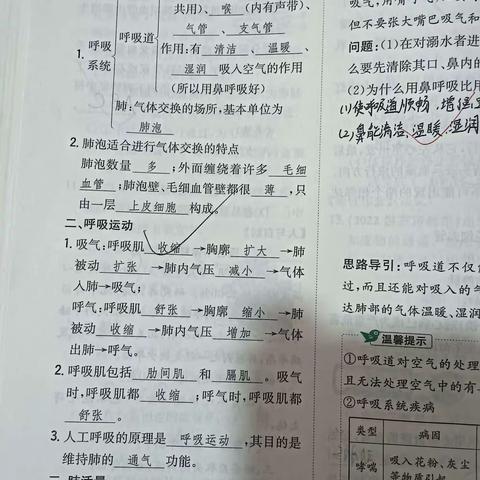 共用)、喉(内有声带)、
气管、支气管
呼吸道
作用:有清洁、温暖、
1.呼吸系统
湿润吸入空气的作用
(所以用鼻呼吸好)
肺:气体交换的场所,基本单位为
肺泡
2.肺泡适合进行气体交换的特点
肺泡数量多;外面缠绕着许多毛细
血管;肺泡壁、毛细血管壁都很薄,只
由一层上皮细胞构成。
二、呼吸运动
1.吸气:呼吸肌收缩→胸廓扩大→肺
被动扩张→肺内气压减小→气体
入肺→吸气;
呼气:呼吸肌舒张→胸廓缩小→肺
被动收缩→肺内气压增加→气体
出肺→呼气。
2.呼吸肌包括肋间肌和膈肌。吸气
时,呼吸肌都收缩;呼气时,呼吸肌都
舒张。
3.人工呼吸的原理是呼吸运动,其目的是
维持肺的通气功能。
但不要张大嘴巴吸气和
问题:(1)在对溺水者进
么要先清除其口、鼻内的
(2)为什么用鼻呼吸比用
(1)使呼吸道顺畅,增
(2)鼻能清洁、温暖、湿润
思路导引:呼吸道不仅
过,而且还能对吸入的气
达肺部的气体温暖、湿润
温馨提示
①呼吸道对空气的处理
且无法处理空气中的有
②呼吸系统疾病
类型 病因
哮喘 吸入花粉、灰尘
等物质引起